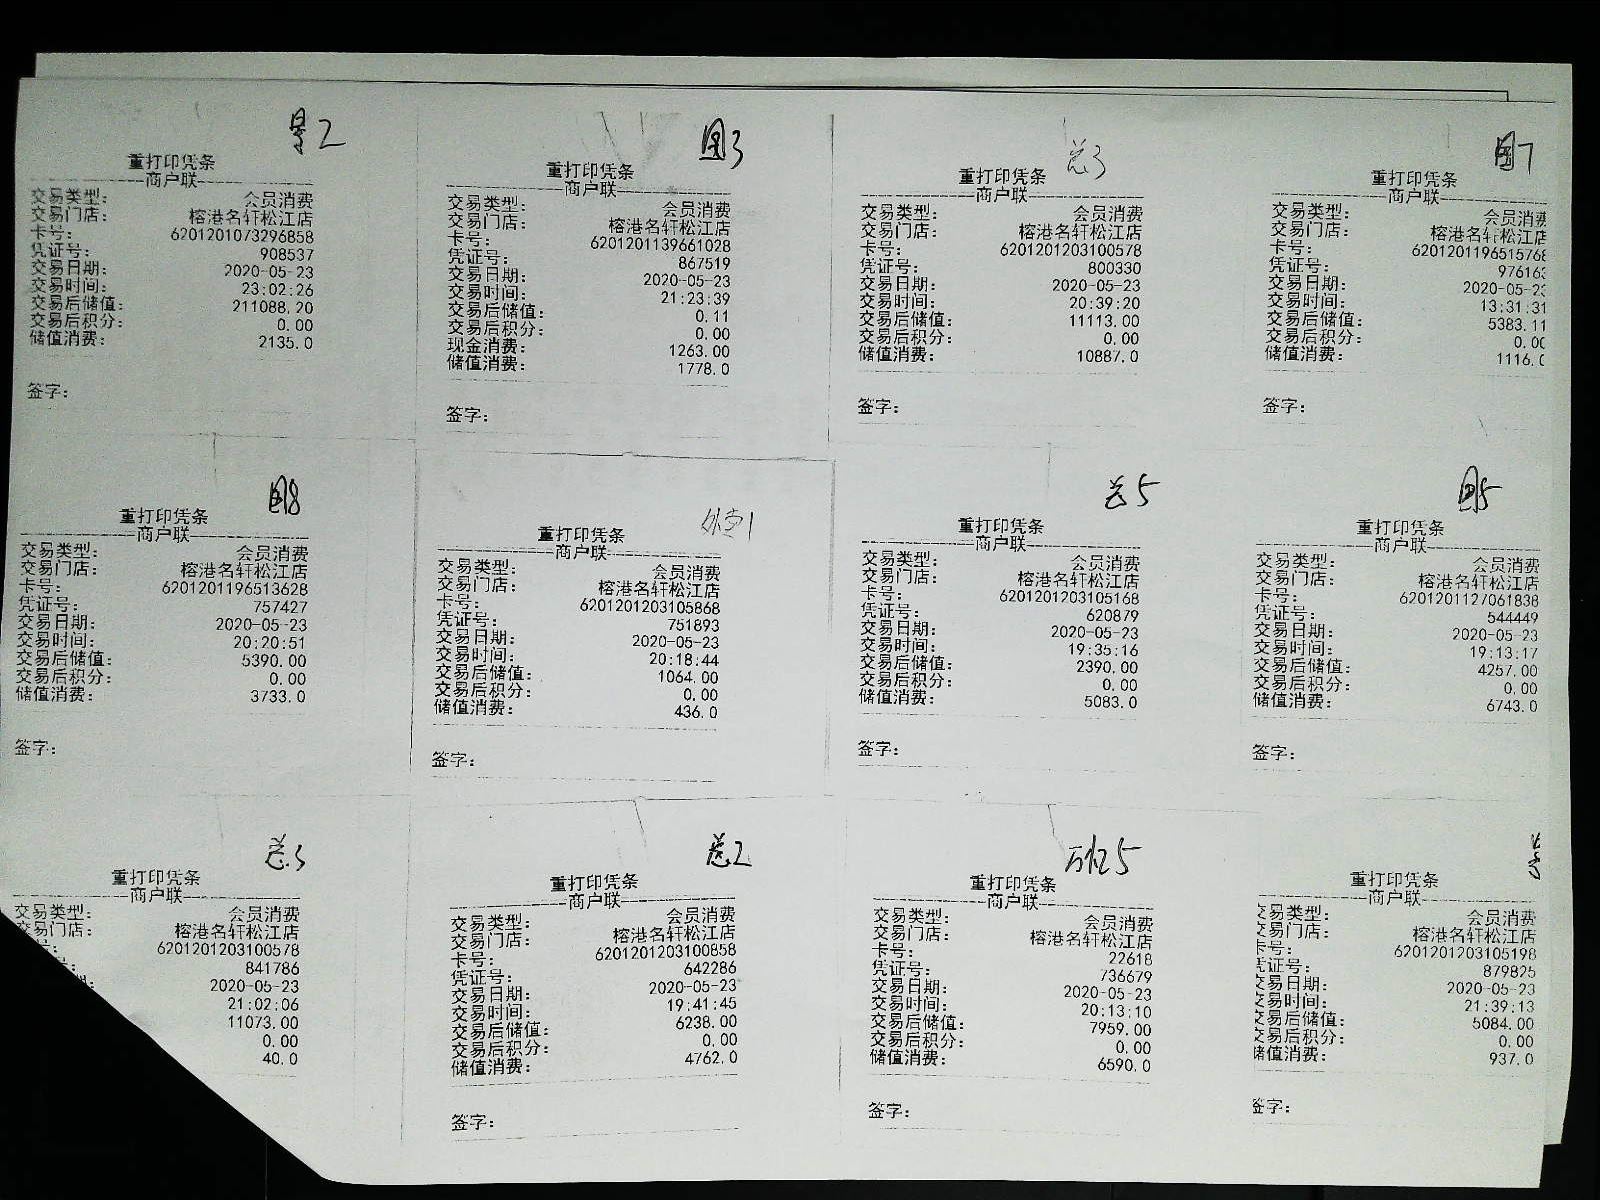 2
重打印凭条
商户联
交易类型: 会员消费
交易门店: 榕港名轩松江店
卡号: 6201201073296858
凭证号: 908537
交易日期: 2020-05-23
交易时间: 23:02:26
交易后储值: 211088.20
交易后积分: 0.00
储值消费: 2135.0
签字:
3
重打印凭条
商户联
交易类型: 会员消费
交易门店: 榕港名轩松江店
卡号: 6201201139661028
凭证号: 867519
交易日期: 2020-05-23
交易时间: 21:23:39
交易后储值: 0.11
交易后积分: 0.00
现金消费: 1263.00
储值消费: 1778.0
签字:
总3
重打印凭条
商户联
交易类型: 会员消费
交易门店: 榕港名轩松江店
卡号: 6201201203100578
凭证号: 800330
交易日期: 2020-05-23
交易时间: 20:39:20
交易后储值: 11113.00
交易后积分: 0.00
储值消费: 10887.0
签字:
7
重打印凭条
商户联
交易类型: 会员消费
交易门店: 榕港名轩松江店
卡号: 6201201196515768
凭证号: 976163
交易日期: 2020-05-23
交易时间: 13:31:31
交易后储值: 5383.11
交易后积分: 0.00
储值消费: 1116.0
签字:
8
重打印凭条
商户联
交易类型: 会员消费
交易门店: 榕港名轩松江店
卡号: 6201201196513628
凭证号: 757427
交易日期: 2020-05-23
交易时间: 20:20:51
交易后储值: 5390.00
交易后积分: 0.00
储值消费: 3733.0
签字:
1
重打印凭条
商户联
交易类型: 会员消费
交易门店: 榕港名轩松江店
卡号: 6201201203105868
凭证号: 751893
交易日期: 2020-05-23
交易时间: 20:18:44
交易后储值: 1064.00
交易后积分: 0.00
储值消费: 436.0
签字:
总5
重打印凭条
商户联
交易类型: 会员消费
交易门店: 榕港名轩松江店
卡号: 6201201203105168
凭证号: 620879
交易日期: 2020-05-23
交易时间: 19:35:16
交易后储值: 2390.00
交易后积分: 0.00
储值消费: 5083.0
签字:
5
重打印凭条
商户联
交易类型: 会员消费
交易门店: 榕港名轩松江店
卡号: 6201201127061838
凭证号: 544449
交易日期: 2020-05-23
交易时间: 19:13:17
交易后储值: 4257.00
交易后积分: 0.00
储值消费: 6743.0
签字:
总3
重打印凭条
商户联
交易类型: 会员消费
交易门店: 榕港名轩松江店
号: 6201201203100578
841786
2020-05-23
21:02:06
11073.00
0.00
40.0
总2
重打印凭条
商户联
交易类型: 会员消费
交易门店: 榕港名轩松江店
卡号: 6201201203100858
凭证号: 642286
交易日期: 2020-05-23
交易时间: 19:41:45
交易后储值: 6238.00
交易后积分: 0.00
储值消费: 4762.0
签字:
万亿5
重打印凭条
商户联
交易类型: 会员消费
交易门店: 榕港名轩松江店
卡号: 22618
凭证号: 736679
交易日期: 2020-05-23
交易时间: 20:13:10
交易后储值: 7959.00
交易后积分: 0.00
储值消费: 6590.0
签字:
重打印凭条
商户联
交易类型: 会员消费
交易门店: 榕港名轩松江店
卡号: 6201201203105198
凭证号: 879825
交易日期: 2020-05-23
交易时间: 21:39:13
交易后储值: 5084.00
交易后积分: 0.00
储值消费: 937.0
签字: